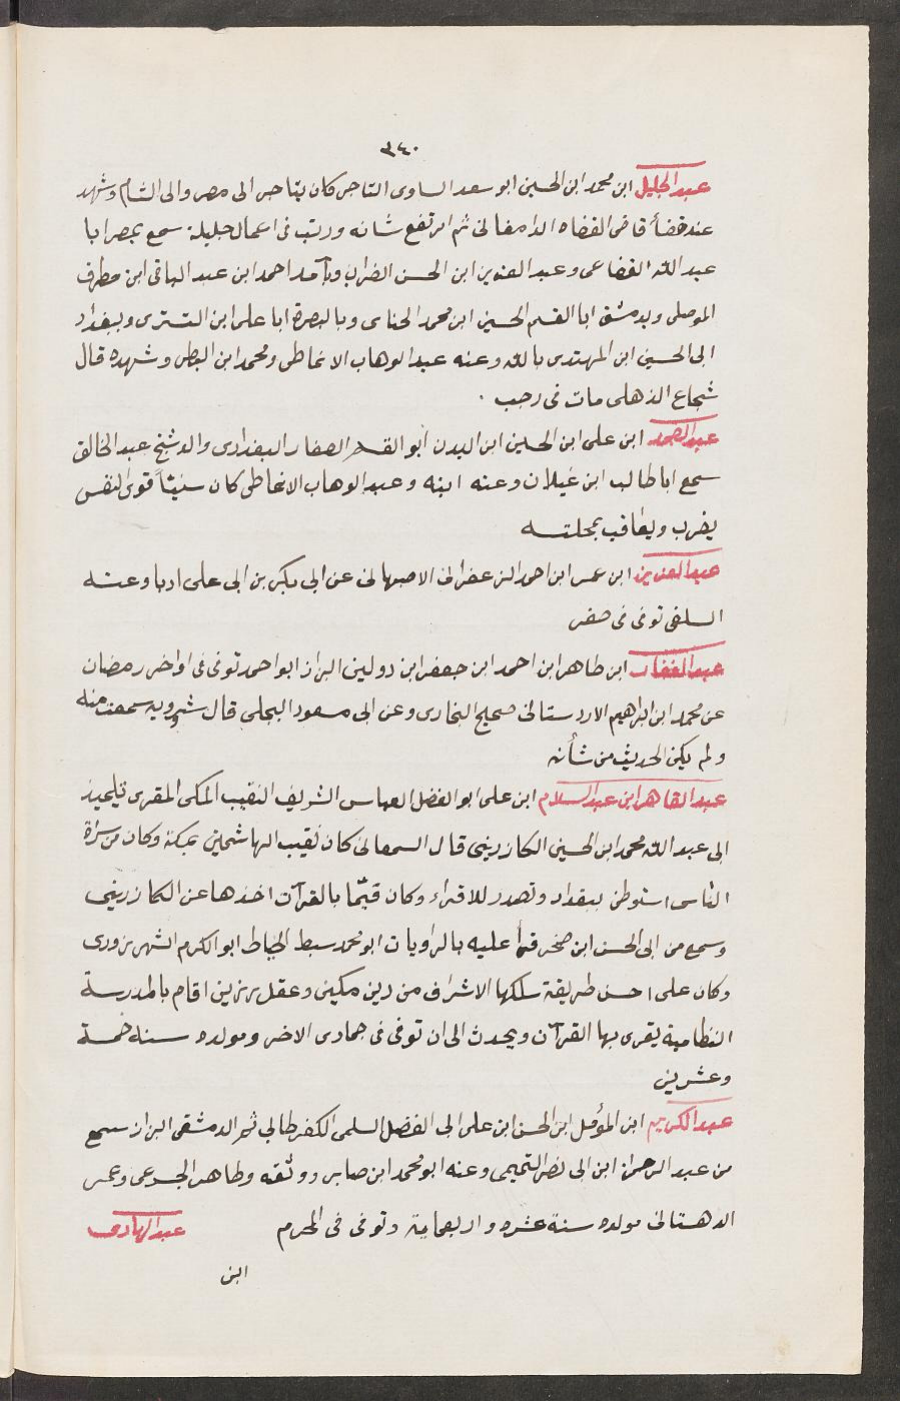 ٣٤٠
عبد الجليل ابن محمد ابن الحسين ابو سعد الساوى التاجر كان يتاجر الى مصر والى الشام وشهد
عند قضاة قاضى القضاه الدامغانى ثم ارتفع شانه ورتب فى اعمال جليلة سمع بمصر ابا
عبد الله القضاعى وعبد العزيز ابن الحسن الضراب وبآمد احمد ابن عبد الباقى ابن مطرف
الموصلى وبدمشق ابا القسم الحسين ابن محمد الحناى وبالبصرة ابا على ابن التسترى وببغداد
ابى الحسين ابن المهتدى بالله وعنه عبد الوهاب الانماطى ومحمد ابن البطى وشهده قال
شجاع الذهلى مات فى رجب .
عبد الصمد ابن على ابن الحسين ابن البدن أبو القسم الصفار البغدادى والد شيخ عبد الخالق
سمع ابا طالب ابن غيلان وعنه ابنه وعبد الوهاب الانماطى كان سنيًا قوى النفس
يضرب ويعاقب بمحلته
عبد العزيز ابن عمر ابن احمد الزعفرانى الاصبهانى عن ابى بكر بن ابى على ادبا وعنه
السلفى توفى فى صفر
عبد الغفار ابن طاهر ابن احمد ابن جعفر ابن دولين البزاز ابو احمد توفى فى اواخر رمضان
عن محمد ابن ابراهيم الاردستانى صحيح البخارى وعن ابى مسعود البجلى قال شيرويه سمعت منه
ولم يكن الحديث من شأنه
عبد القاهر ابن عبد السلام ابن على ابو الفضل العباسى الشريف النقيب المكى المقرى تلميذ
ابى عبد الله محمد ابن الحسين الكازرينى قال السمعانى كان نقيب الهاشميين بمكة وكان من سراة
الناس استوطن ببغداد وتصدر للاقراء وكان قيّما بالقرآت اخذها عن الكازرينى
وسمع من ابى الحسن ابن صخر قرأ عليه بالراويات ابو محمد سبط الخياط ابو الكرم الشهرزورى
وكان على احسن طريقة سلكها الاشراف من دين مكين وعقل رزين اقام بالمدرسة
النظامية يقرى بها القرآن ويحدث الى ان توفى فى جمادى الاخر ومولده سنة خمسة
وعشرين
عبد الكريم ابن المؤمل ابن الحسن ابن على ابى الفضل السلمى الكفرطابى ثم الدمشقى البزاز سمع
من عبد الرحمن ابن ابى نصر التميمى وعنه ابو محمد ابن صابر ووثقه وطاهر الجرعى وعمر
الدهستانى مولده سنة عشره واربعماية وتوفى فى المحرم عبد الهادى
ابن